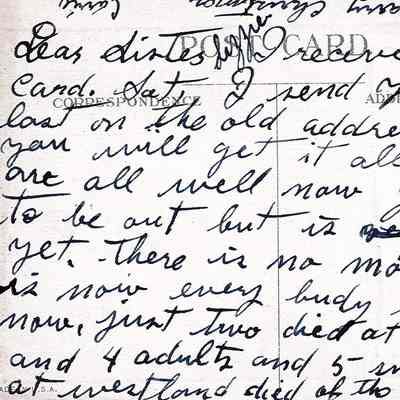 Dear sister Lizzie I receive
POST CARD
Card. Sat. I send
CORRESPONDENCE
ADD
last on the old addre
you will get it all
are all well now
to be out but is
yet. There is no mo
is now every budy
now, just two died at
and 4 adults and 5
at westland died of
U.S.A.